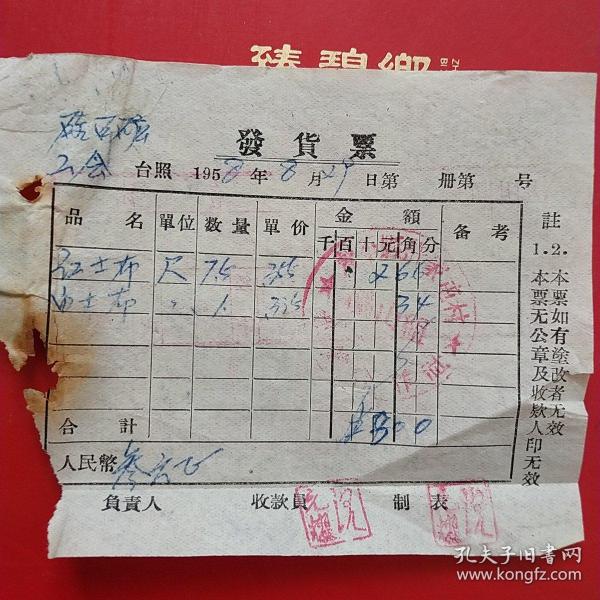 臻碧鄉
發貨票
工会 台照 1958年8月29日第 册第 号
品名 單位 数量 單价 金額 備考
千百十元角分
红士布 尺 7.5 355 2 66
白士布 〃 1. 335 34
合計 ¥300
人民幣 叁元正
負責人 收款員 制表
註
1.本票如有塗改者无效
2.本票无公章及收款人印无效
孔夫子旧书网
www.kongfz.com